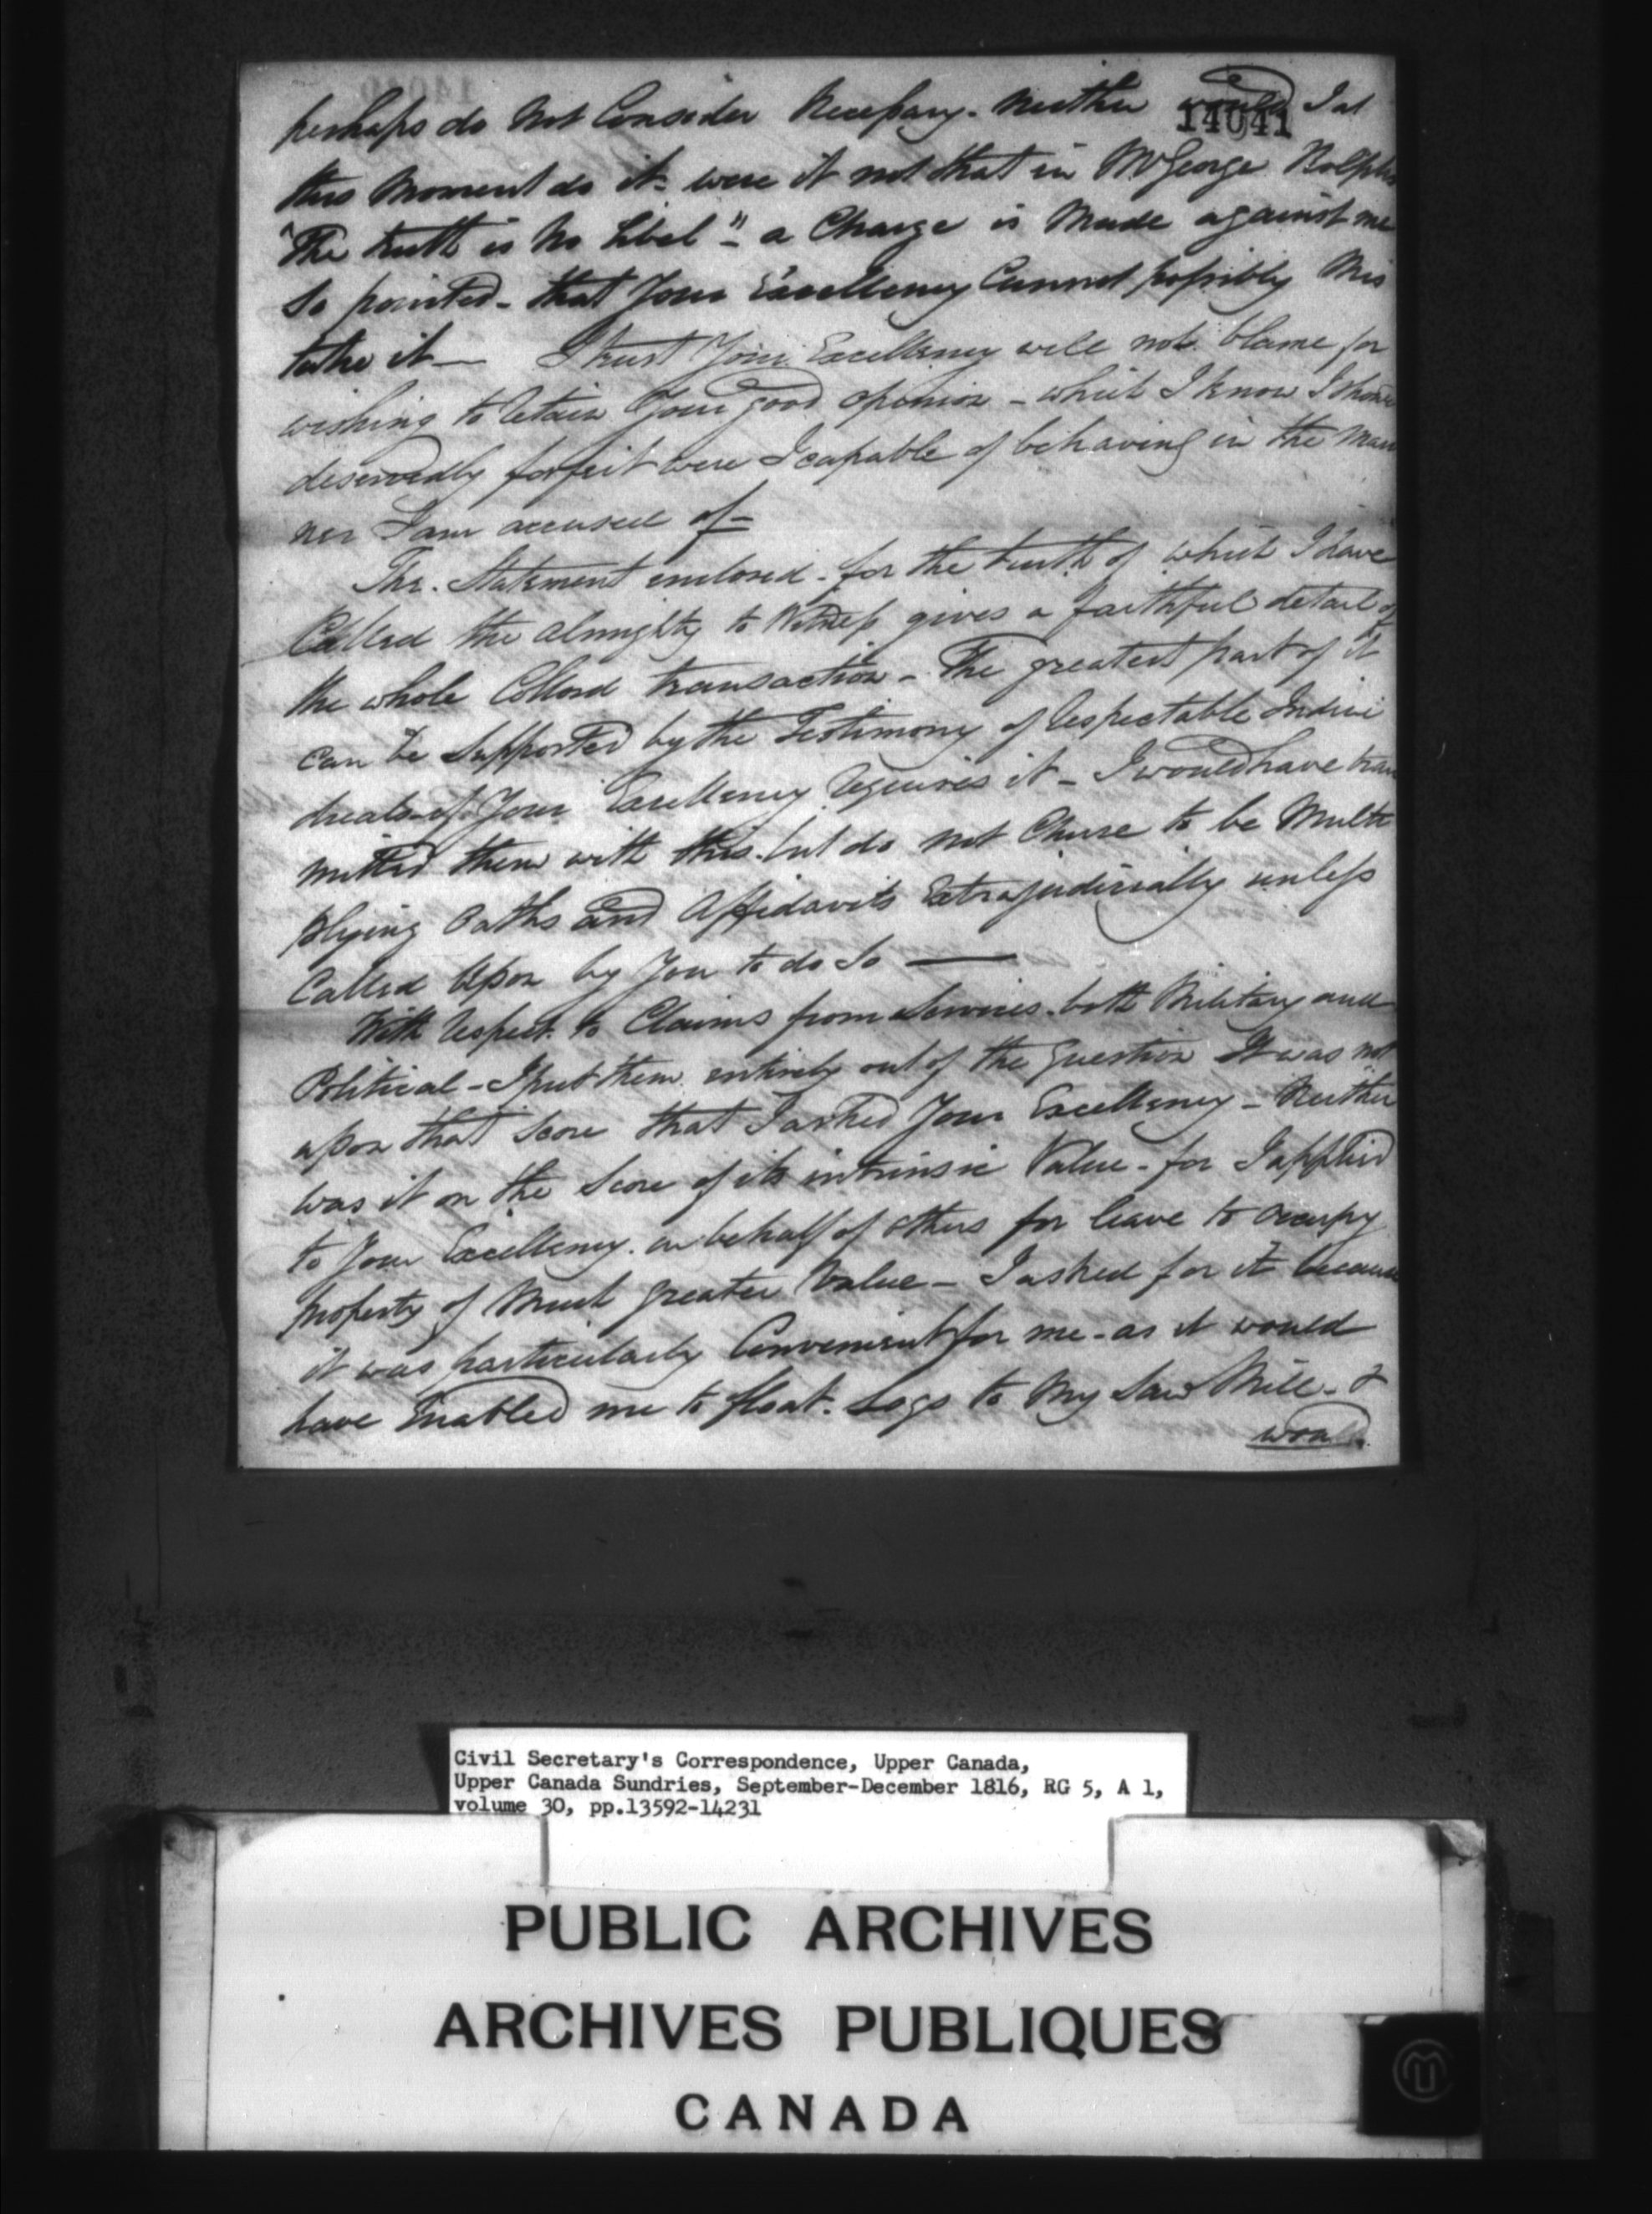 perhaps do not Consider Necessary. Neither would I at
14041
this Moment do it- were it not that in Mr George Rolphs
"The truth is No Libel"- a Charge is Made against me
So pointed- that Your Excellency Cannot possibly Mis
take it — I trust Your Excellency will not blame for
wishing to retain Your good opinion - which I know I should
deservedly forfeit were I capable of behaving in the Man
ner I am accused of-
The Statement enclosed. for the truth of which I have
Called the Almighty to Witness gives a faithful detail of
the whole Collord transaction - The greatest part of it
can be Supported by the Testimony of respectable Indivi
duals-if Your Excellency requires it - I would have trans
mitted them with this. but do not Chuse to be Multi
plying Oaths and Affidavits Extrajudicially unless
Called Upon by You to do So —
With respect to Claims from Services. both Military and
Political - I put them entirely out of the question It was not
upon that Score that I asked Your Excellency - Neither
was it on the Score of its intrinsic Value - for I applied
to Your Excellency. on behalf of others for leave to occupy
property of Much greater Value - I asked for it because
it was particularly Convenient for me - as it would
have Enabled me to float. Logs to My Saw Mill - &
would
Civil Secretary's Correspondence, Upper Canada,
Upper Canada Sundries, September-December 1816, RG 5, A 1,
volume 30, pp.13592-14231
PUBLIC ARCHIVES
ARCHIVES PUBLIQUES
CANADA